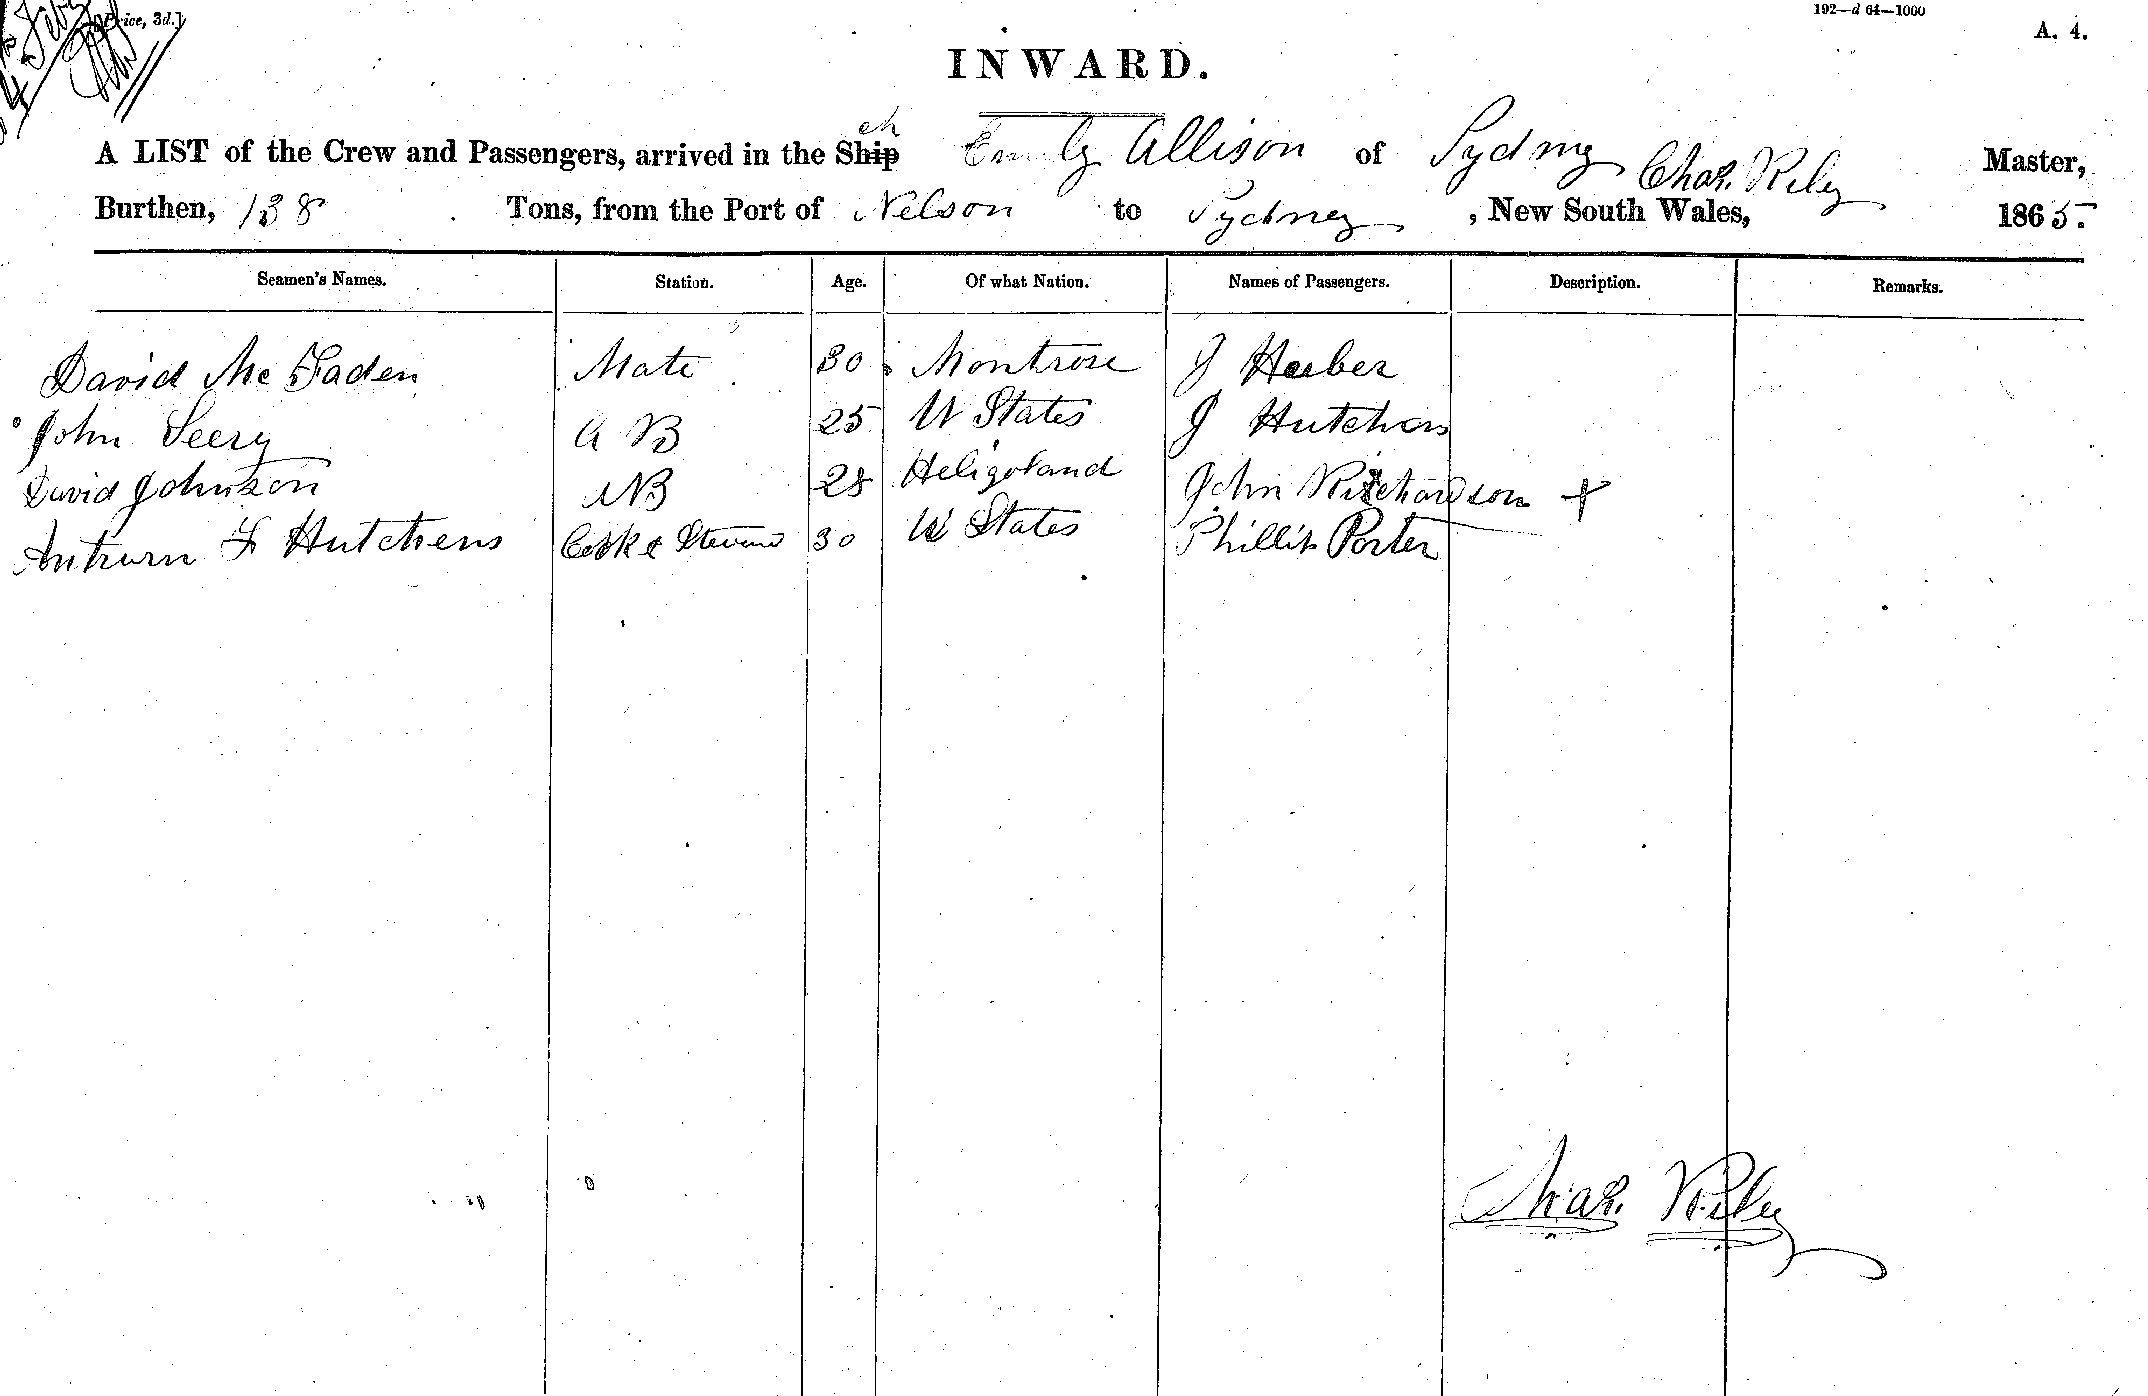 Price, 3d.]
192—d 64—1000
A. 4.
INWARD.
A LIST of the Crew and Passengers, arrived in the Ship Sch Emily Allison of Sydney Chas. Riley Master,
Burthen, 138 Tons, from the Port of Nelson to Sydney, New South Wales, 1865.
Seamen's Names. Station. Age. Of what Nation. Names of Passengers. Description. Remarks.
David McFaden Mate 30 Montrose J Heeber
John Seery A B 25 U States J Hutchens
David Johnson AB 28 Heligoland John Richardson +
F Hutchens Cook & 30 U States Phillip Porter
Chas. Riley